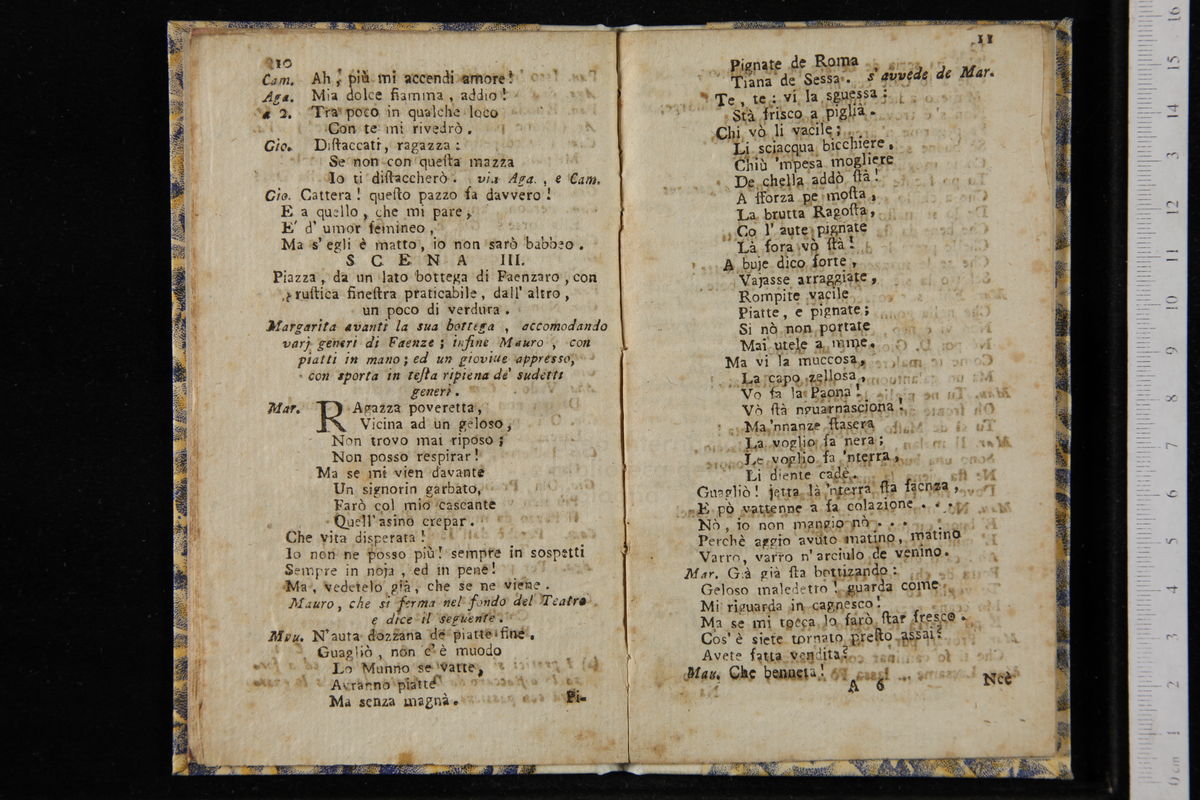 10
Cam. Ah, più mi accendi amore!
Aga. Mia dolce fiamma, addio!
a 2. Tra poco in qualche loco
Con te mi rivedrò.
Gio. Diſtaccati, ragazza:
Se non con queſta mazza
Io ti diſtaccherò. via Aga., e Cam.
Gio. Cattera! queſto pazzo fa davvero!
E a quello, che mi pare,
E' d' umor femineo,
Ma s' egli è matto, io non sarò babbeo.
SCENA III.
Piazza, da un lato bottega di Faenzaro, con
ruſtica fineſtra praticabile, dall' altro,
un poco di verdura.
Margarita avanti la sua bottega, accomodando
varj generi di Faenze; infine Mauro, con
piatti in mano; ed un gioviue appresso,
con sporta in teſta ripiena de' sudetti
generi.
Mar. RAgazza poveretta,
Vicina ad un geloso,
Non trovo mai riposo;
Non posso respirar!
Ma se mi vien davante
Un signorin garbato,
Farò col mio cascante
Quell' asino crepar.
Che vita disperata!
Io non ne posso più! sempre in sospetti
Sempre in noja, ed in pene!
Ma, vedetelo già, che se ne viene.
Mauro, che si ferma nel fondo del Teatro
e dice il seguente.
Mau. N'auta dozzana de piatte fine.
Guagliò, non c'è muodo
Lo Munno se vatte,
Avranno piatte
Ma senza magnà.
Pi-
11
Pignate de Roma
Tiana de Sessa. s'avvede de Mar.
Te, te: vi la sguessa:
Stà frisco a piglià.
Chi vò li vacile;
Li sciacqua bicchiere.
Chiù 'mpesa mogliere
De chella addò ſtà!
A fforza pe moſta,
La brutta Ragoſta,
Co l' aute pignate
Là fora vò ſtà!
A buje dico forte,
Vajasse arraggiate,
Rompite vacile
Piatte, e pignate;
Si nò non portate
Mai utele a mme.
Ma vi la muccosa,
La capo zellosa,
Vo fa la Paona!
Vò ſtà nguarnasciona!
Ma 'nnanze ſtasera
La voglio fa nera;
Le voglio fa 'nterra,
Li diente cadè.
Guagliò! jetta là 'nterra ſta faenza,
E pò vattenne a fa colazione...
Nò, io non mangio nò...
Perchè aggio avuto matino, matino
Varro, varro n' arciulo de venino.
Mar. Già già ſta bottizando:
Geloso maledetto! guarda come
Mi riguarda in cagnesco!
Ma se mi tocca lo farò ſtar fresco.
Cos' è siete tornato preſto assai?
Avete fatta vendita?
Mau. Che benneta!
A 6
Nce